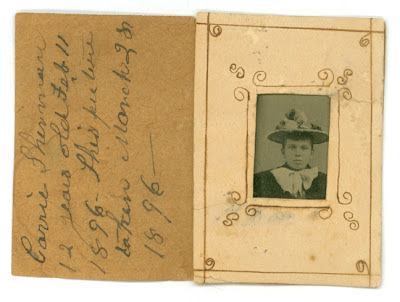 Carrie Sherman
12 years old Feb 11
1896 this picture
taken March 28
1896—